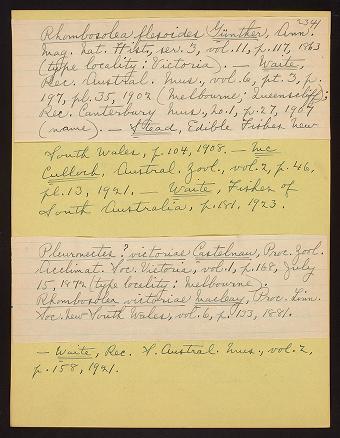 2341
Rhombosolea flesoides Günther, Ann.
Mag. Nat. Hist., ser. 3, vol. 11, p. 117, 1863
(type locality: Victoria). — Waite,
Rec. Austral. Mus., vol. 6, pt. 3, p.
197, pl. 35, 1902 (Melbourne; Queenscliff);
Rec. Canterbury Mus., no. 1, p. 27, 1907
(name). — Stead, Edible Fishes New
South Wales, p. 104, 1908. — Mc
Culloch, Austral. Zool., vol. 2, p. 46,
pl. 13, 1921. — Waite, Fishes of
South Australia, p. 181, 1923.
Pleuronectes? victoriae Castelnau, Proc. Zool.
Acclimat. Soc. Victoria, vol. 1, p. 168, July
15, 1872 (type locality: Melbourne).
Rhombosolea victoriae Macleay, Proc. Linn.
Soc. New South Wales, vol. 6, p. 133, 1881.
— Waite, Rec. S. Austral. Mus., vol. 2,
p. 158, 1921.